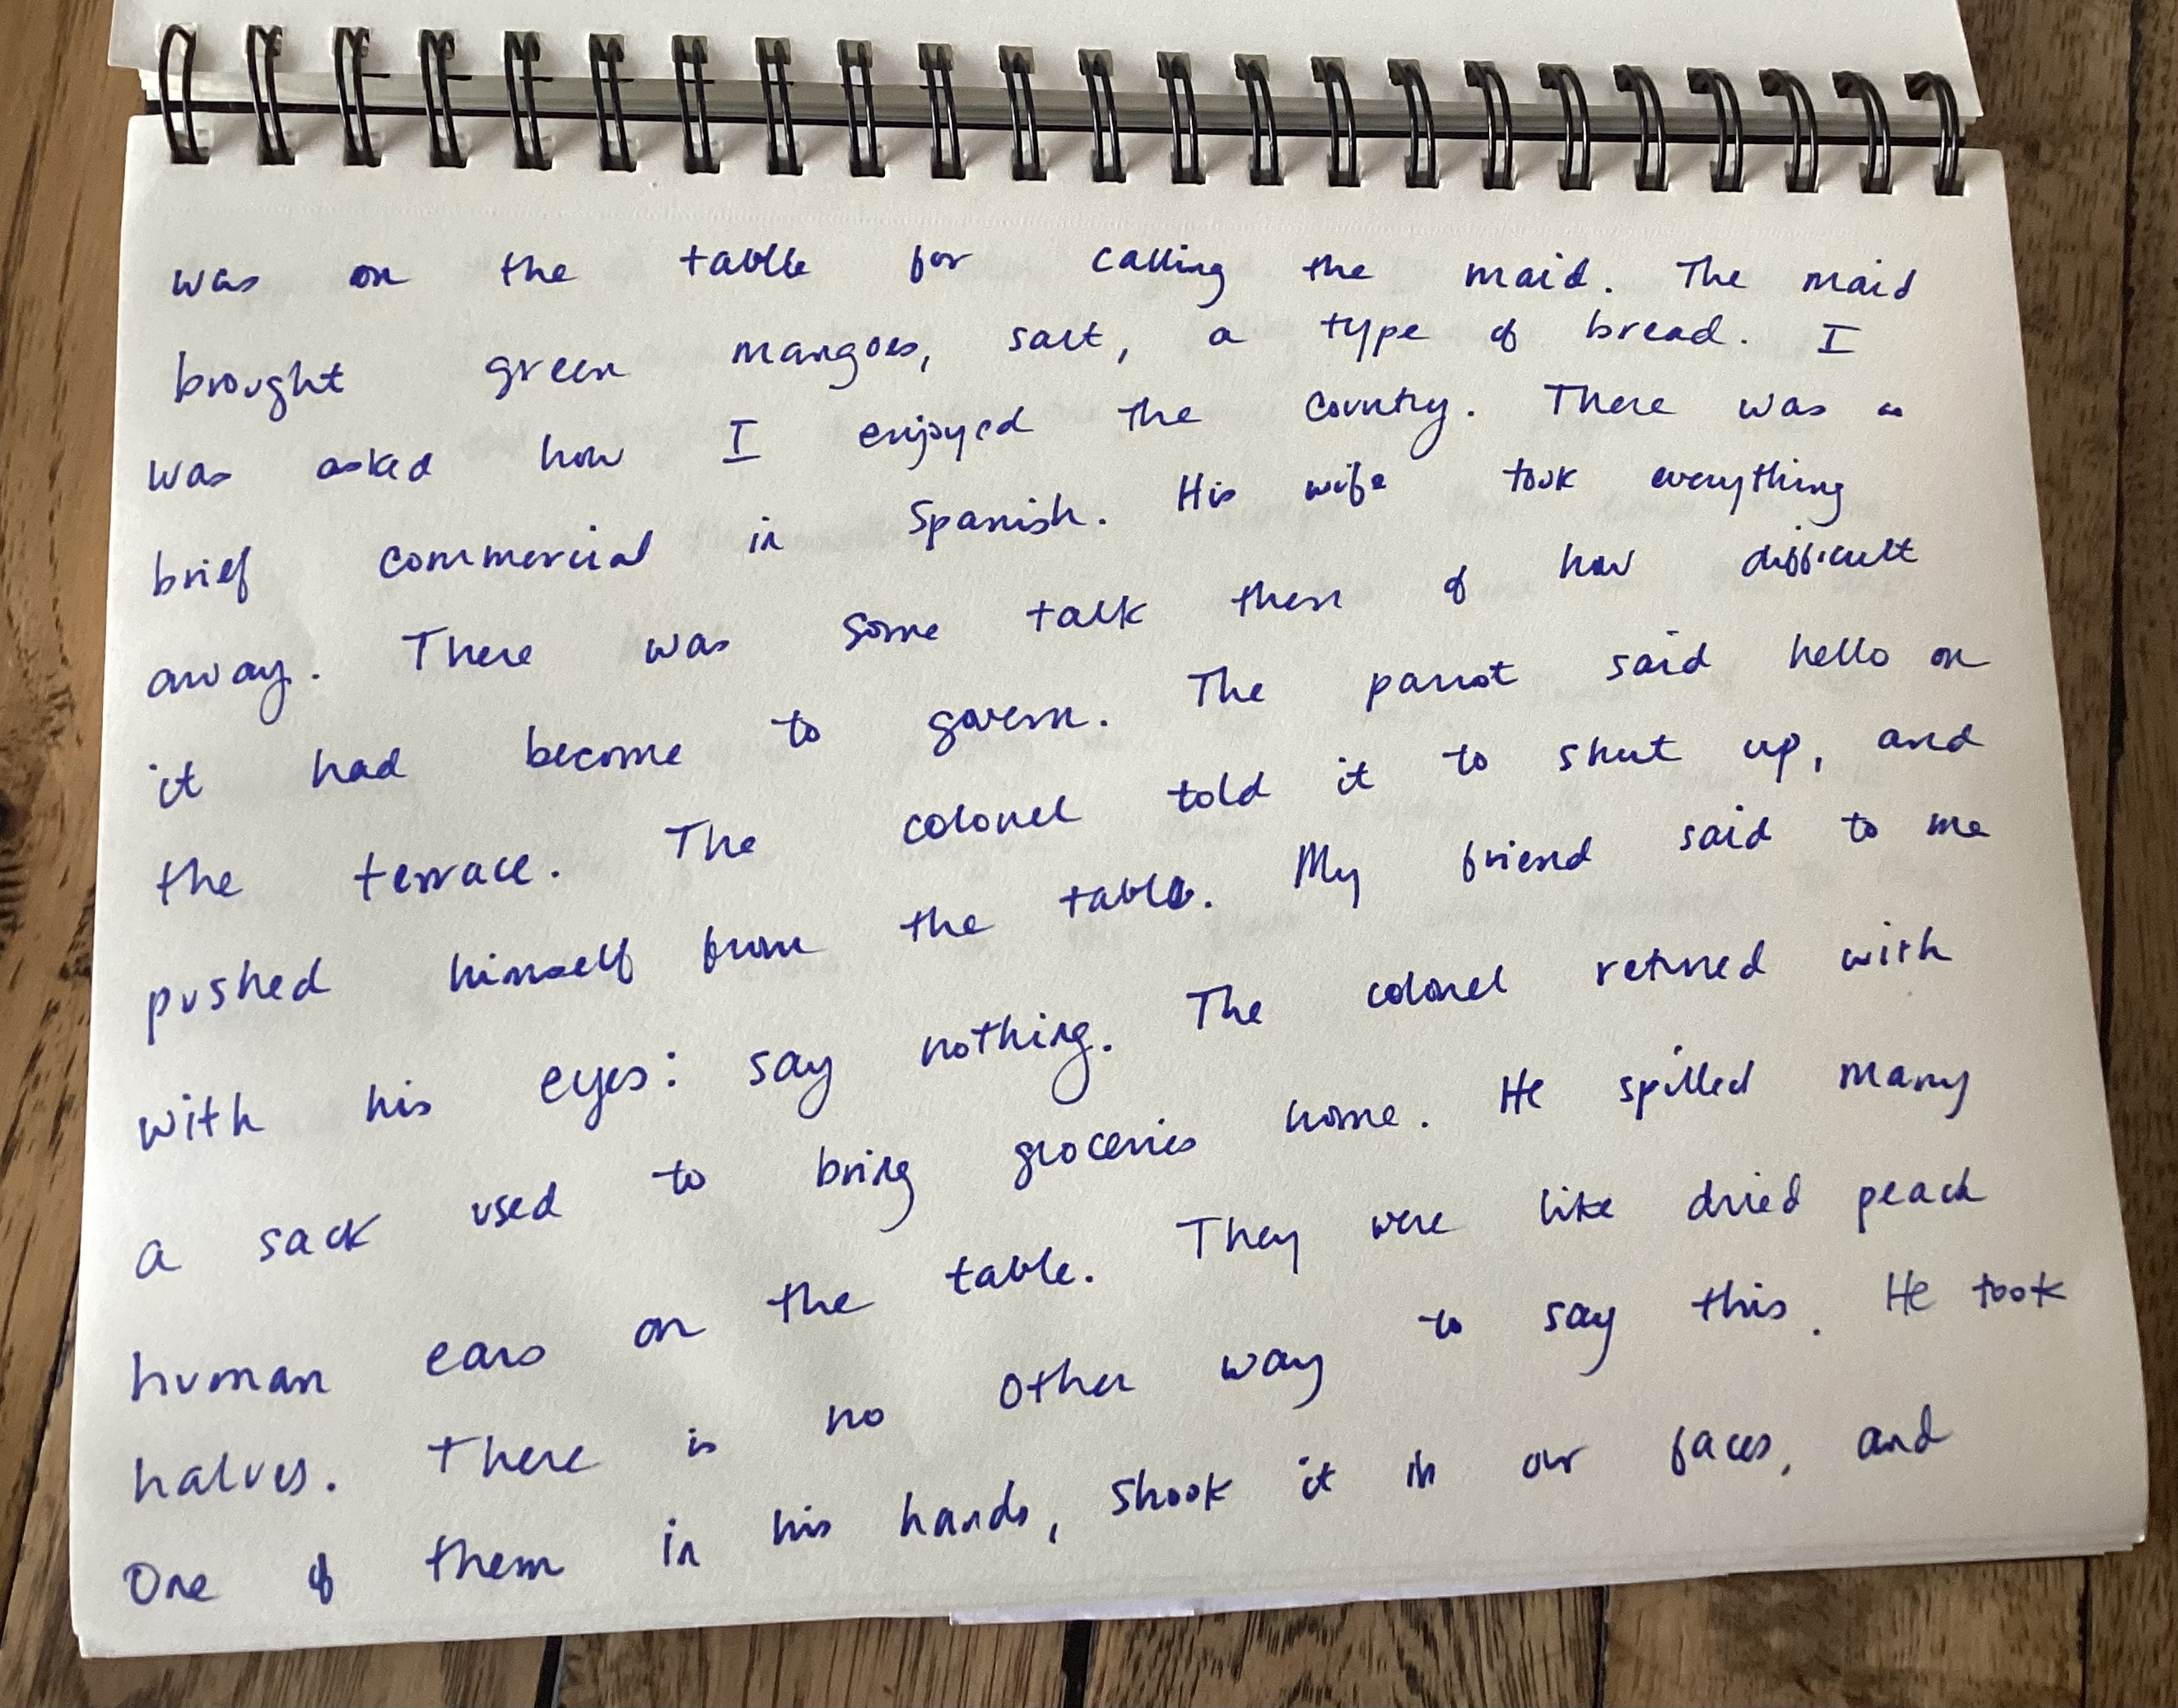 was on the table for calling the maid. The maid
brought green mangoes, salt, a type of bread. I
was asked how I enjoyed the country. There was a
brief commercial in Spanish. His wife took everything
away. There was some talk then of how difficult
it had become to govern. The parrot said hello on
the terrace. The colonel told it to shut up, and
pushed himself from the table. My friend said to me
with his eyes: say nothing. The colonel retuned with
a sack used to bring groceries home. He spilled many
human ears on the table. They were like dried peach
halves. There is no other way to say this. He took
One of them in his hands, shook it in our faces, and